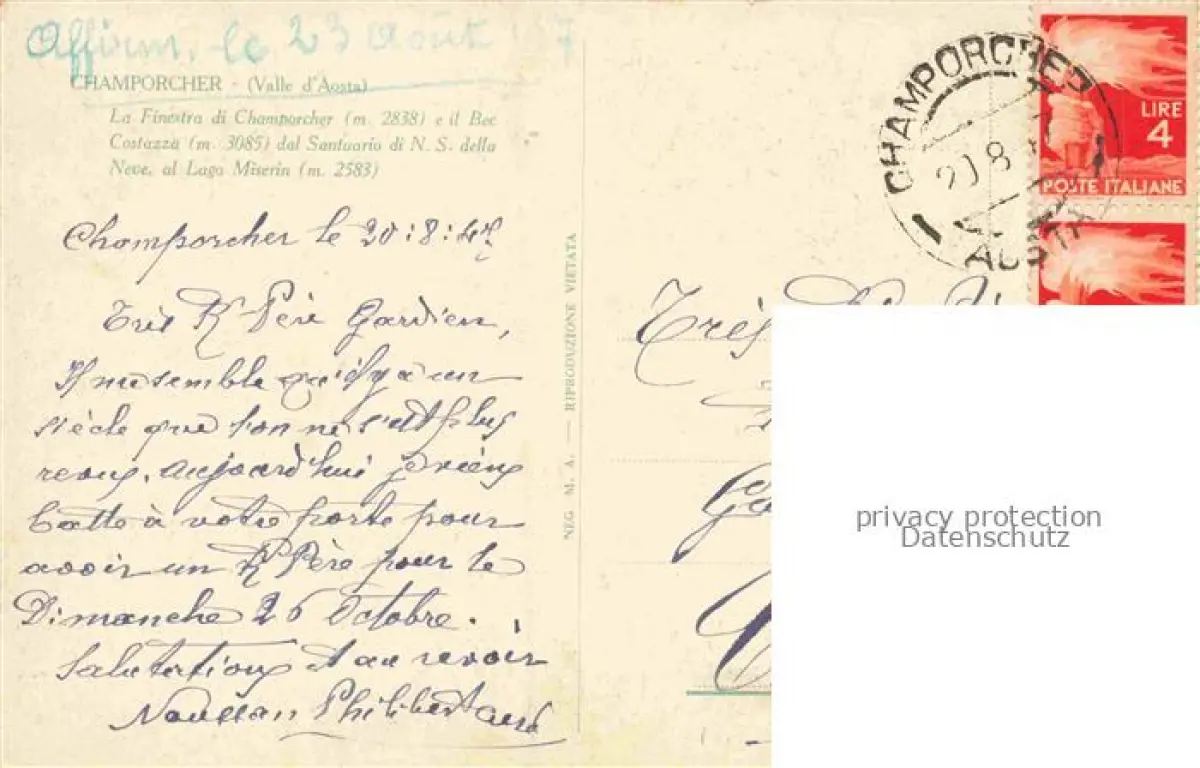 Affirm. le 23 Août 7
CHAMPORCHER - (Valle d'Aosta)
La Finestra di Champorcher (m. 2838) e il Bec
Costazza (m. 3085) dal Santuario di N. S. della
Neve, al Lago Miserin (m. 2583)
Champorcher le 20:8:47
Très R Père Gardien,
Il me semble qu'il y a un
siècle que l'on ne s'est plus
revus. Aujourd'hui je viens
batte à votre porte pour
avoir un R Père pour le
Dimanche 26 Octobre.
Salutations et au revoir
Noussan Philibert curé
NEG. M. A. — RIPRODUZIONE VIETATA
CHAMPORCHER
20.8
AOSTA
LIRE
4
POSTE ITALIANE
Très
privacy protection
Datenschutz